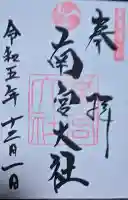 奉拝
南宮大社
令和五年十二月一日